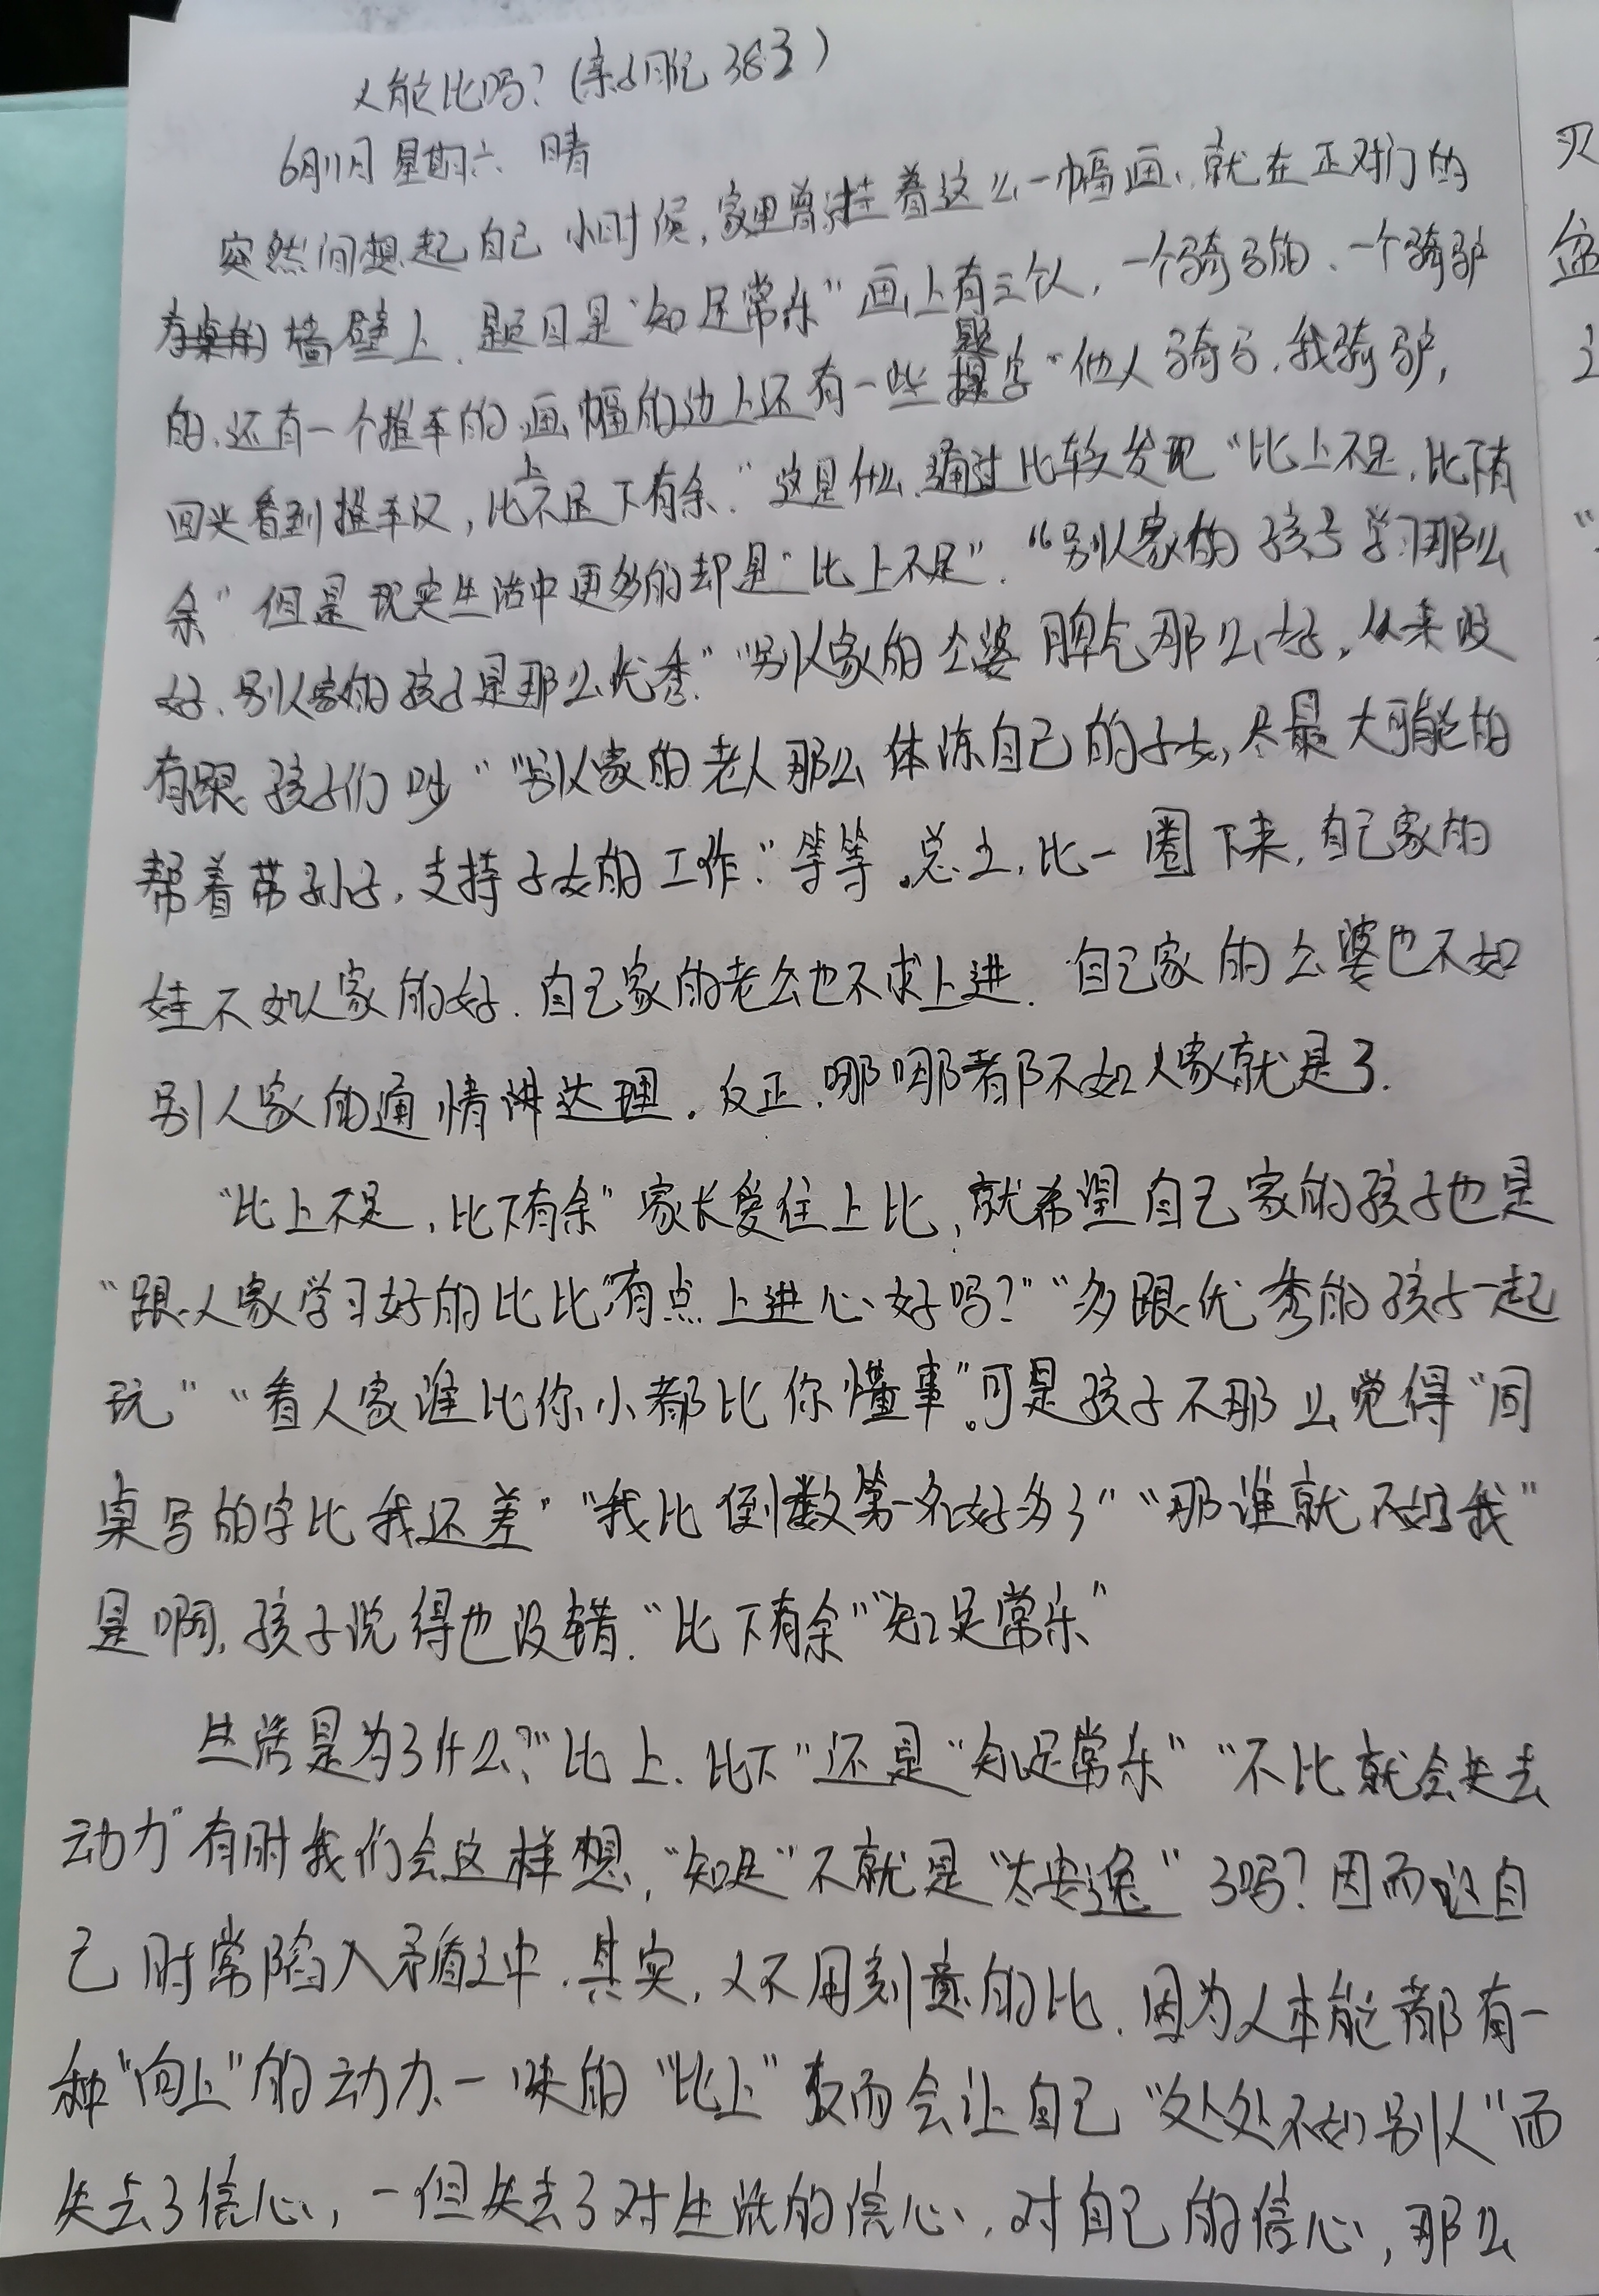 人能比吗？(亲子日记383)
6月11日 星期六 晴
突然间想起自己小时候，家里曾挂着这么一幅画、就在正对门的
墙壁上、题目是“知足常乐”画上有三个人，一个骑马的、一个骑驴
的、还有一个推车的、画幅的边上还有一些题字“他人骑马、我骑驴，
回头看到推车汉，比上不足下有余。”这是什么、通过比较发现“比上不足，比下有
余”但是现实生活中更多的却是“比上不足”。“别人家的孩子学习那么
好、别人家的孩子是那么优秀。”“别人家的公婆脾气那么好，从来没
有跟孩子们吵”“别人家的老人那么体谅自己的子女，尽最大可能的
帮着带孙子，支持子女的工作.”等等。总之，比一圈下来，自己家的
娃不如人家的好、自己家的老公也不求上进、自己家的公婆也不如
别人家的通情达理。反正、哪哪都不如人家就是了.
“比上不足，比下有余”家长爱往上比，就希望自己家的孩子也是
“跟人家学习好的比比”“有点上进心好吗？”“多跟优秀的孩子一起
玩”“看人家谁比你小都比你懂事”。可是孩子不那么觉得“同
桌写的字比我还差”“我比倒数第一名好多了”“那谁就不如我”
是啊，孩子说得也没错.“比下有余”“知足常乐”
生活是为了什么？“比上、比下”还是“知足常乐”“不比就会失去
动力”有时我们会这样想，“知足”不就是“太安逸”了吗？因而让自
己时常陷入矛盾之中.其实，人不用刻意的比、因为人本能都有一
种“向上”的动力、一味的“比上”反而会让自己“处处不如别人”而
失去了信心，一但失去了对生活的信心、对自己的信心，那么